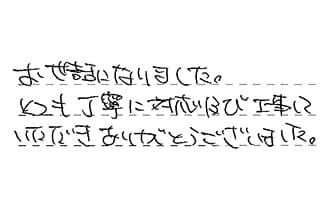 お世話になりました。
とても丁寧に対応及び工事して
いただきありがとうございました。